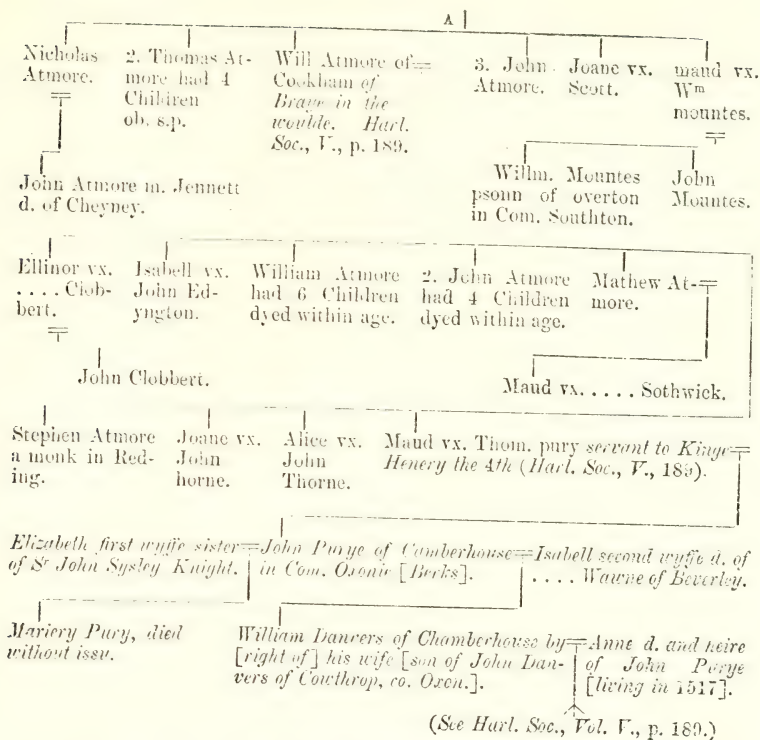 A
Nicholas
Atmore.
2. Thomas At-
more had 4
Children
ob. s.p.
Will Atmore of
Cookham of
Braye in the
woulde. Harl.
Soc., V., p. 189.
3. John
Atmore.
Joane vx.
Scott.
maud vx.
Wm
mountes.
John Atmore m. Jennett
d. of Cheyney.
Willm. Mountes
psonn of overton
in Com. Southton.
John
Mountes.
Ellinor vx.
.... Clob-
bert.
Isabell vx.
John Ed-
yngton.
William Atmore
had 6 Children
dyed within age.
2. John Atmore
had 4 Children
dyed within age.
Mathew At-
more.
John Clobbert.
Maud vx. ..... Sothwick.
Stephen Atmore
a monk in Red-
ing.
Joane vx.
John
horne.
Alice vx.
John
Thorne.
Maud vx. Thom. pury servant to Kinge
Henery the 4th (Harl. Soc., V., 189).
Elizabeth first wyffe sister
of Sr John Sysley Knight.
John Purye of Camberhouse
in Com. Oxonie [Berks].
Isabell second wyffe d. of
.... Wawne of Beverley.
Mariery Pury, died
without issu.
William Danvers of Chamberhouse by
[right of] his wife [son of John Dan-
vers of Cowthrop, co. Oxon.].
Anne d. and heire
of John Purye
[living in 1517].
(See Harl. Soc., Vol. V., p. 189.)